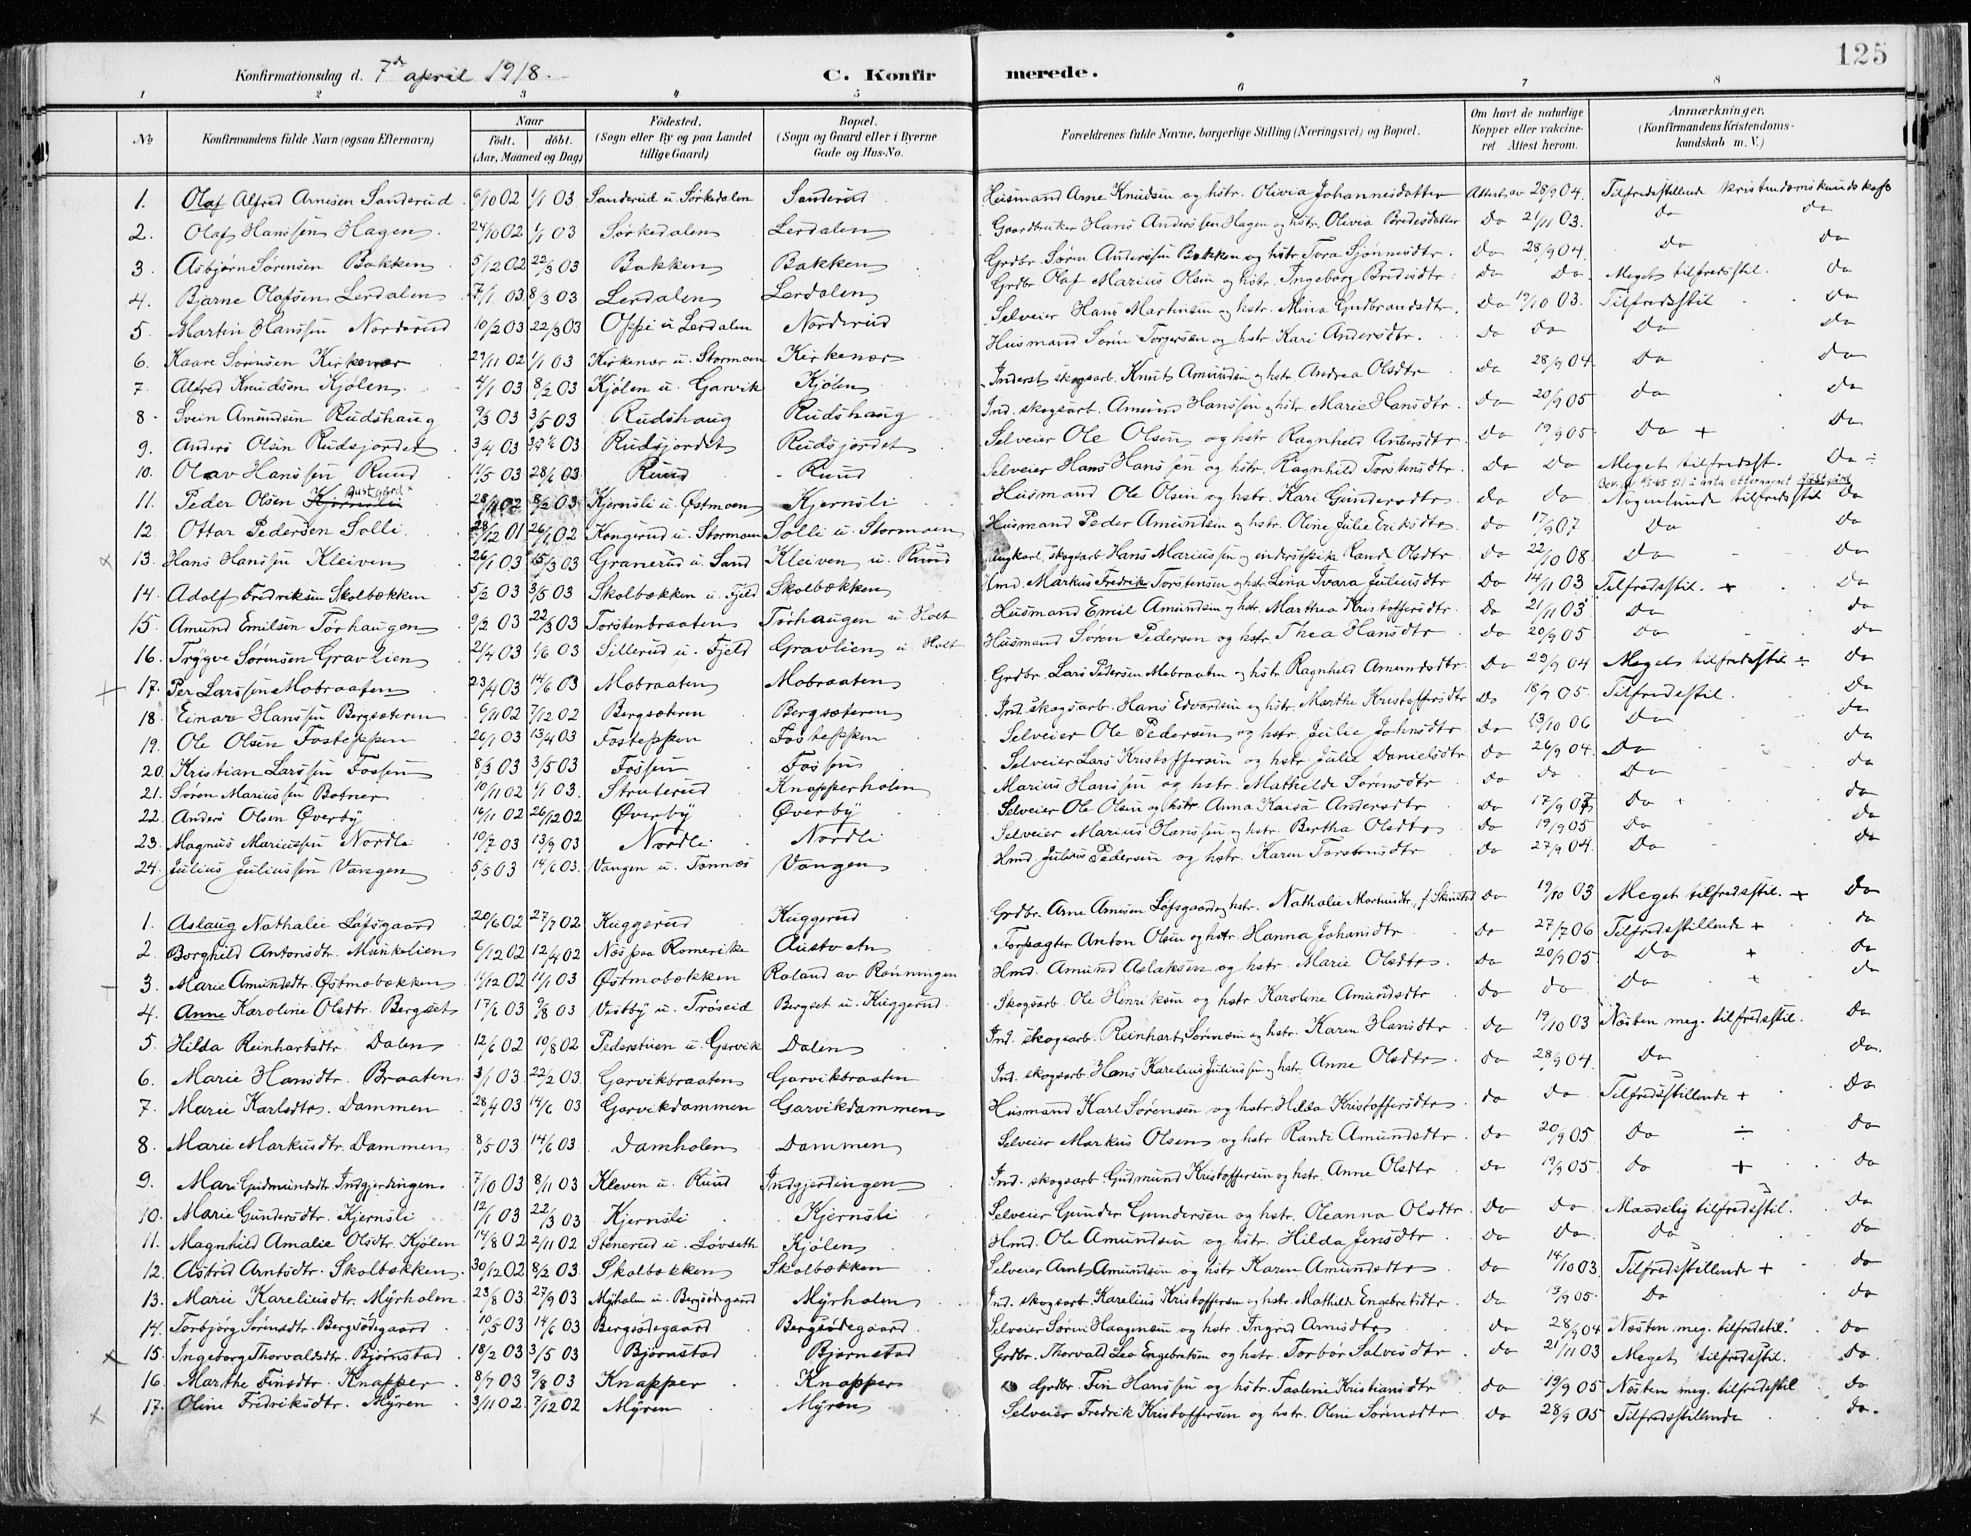 125
Konfirmationsdag d. 7de april 1918.
C. Konfirmerede.
1 2 3 4 5 6 7 8
No
Konfirmandens fulde Navn (ogsaa Efternavn)
Naar
født. døbt.
(Aar, Maaned og Dag)
Fødested.
(Sogn eller By og paa Landet
tillige Gaard)
Bopæl.
(Sogn og Gaard eller i Byerne
Gade og Hus-No.
Forældrenes fulde Navne, borgerlige Stilling (Næringsvei) og Bopæl.
Om havt de naturlige
Kopper eller vakcine-
ret. Attest herom.
Anmærkninger.
(Konfirmandens Kristendoms-
kundskab m. V.)
1. Olaf Alfred Arnesen Sanderud 6/10 02 1/1 03 Sanderud u. Sørkedalen Sanderud Husmand Arne Knudsen og hstr. Olivia Johannesdatter Attest av 28/9 04. Tilfredsstillende kristendomskundskap
2. Olaf Hanssen Hagen 24/10 02 1/1 03 Sørkedalen Lerdalen Gaardbruker Hans Anderssen Hagen og hstr. Olivia Bredesdatter Do 21/11 03. Do Do
3. Asbjørn Sørensen Bakken 5/12 02 22/3 03 Bakken Bakken Grdbr. Søren Anderssen Bakken og hstr. Tora Sjønnesdtr. Do 28/9 04. Do Do
4. Bjarne Olafsen Lerdalen 7/1 03 8/3 03 Lerdalen Lerdalen Grdbr. Olaf Marius Olsen og hstr. Ingeborg Bredesdtr. Do Do Meget tilfredsstil. Do
5. Martin Hanssen Norderud 10/2 03 22/3 03 Oppi u Lerdalen Norderud Selveier Hans Martinsen og hstr. Mina Gudbrandsdtr. Do 19/10 03. Tilfredsstil Do
6. Kaare Sørensen Kirkenær 29/11 02 1/1 03 Kirkenær u. Stormoen Kirkenær Husmand Søren Torgersen og hstr Kari Andersdtr. Do Do Do Do
7. Alfred Knudsen Kjølen 4/1 03 8/2 03 Kjølen u. Garvik Kjølen Inderst skogsarb. Knut Amundsen og hstr Andrea Olsdtr Do 28/9 04 Do Do
8. Svein Amundsen Rudshaug 9/3 03 3/5 03 Rudshaug Rudshaug Ind. skogsarb. Amund Hanssen og hstr. Marie Hansdtr. Do 20/9 05 Do Do
9. Anders Olsen Rudsjordet 3/4 03 03 Rudsjordet Rudsjordet Selveier Ole Olsen og hstr Ragnhild Andersdtr. Do 19/9 05 Do + Do
10. Olav Hanssen Ruud 11/5 03 28/6 03 Ruud Ruud Selveier Hans Hanssen og hstr. Ragnhild Torstensdtr. Do Do Meget tilfredsst. Do ÷
11. Peder Olsen Kjernsli Austgard 28/ 02 8/2 03 Kjernsli u. Østmoen Kjernsli Husmand Ole Olsen og hstr. Kari Gundersdtr Do Do Nogenlunde tilfredsstil Do
12. Ottar Pedersen Solli 28/12 01 26/1 02 Kongerud u. Stormoen Solli u. Stormoen Husmand Peder Amundsen og hstr. Oline Julie Eriksdtr Do 17/9 07 Do Do
x 13. Hans Hanssen Kleiven 26/1 03 15/3 03 Granerud u. Sand Kleiven u. Ruud Ungkarl skogsarb Hans Mariussen og inderstpike Randi Olsdtr Do 22/10 08 Do Do
14. Adolf Fredriksen Skolbækken 5/2 03 3/5 03 Skolbækken u. Fjeld Skolbækken Hmd. Markus Fredrik Torstensen og hstr Lina Tvara Juliusdtr Do 14/11 03 Tilfredsstil. + Do
15. Amund Emilsen Torhaugen 9/2 03 22/3 03 Torstenbraaten Torhaugen u Holt Husmand Emil Amundsen og hstr. Marthea Kristoffersdtr. Do 21/11 03 Do Do
16. Trygve Sørensen Gravlien 21/4 03 1/6 03 Sillerud u. Fjeld Gravlien u. Holt Husmand Søren Pedersen og hstr. Thea Hansdtr Do 20/9 05 Do Do
+ 17. Per Larssen Mobraaten 23/4 03 14/6 03 Mobraaten Mobraaten Grdbr. Lars Pedersen Mobraaten og hstr Ragnhild Amundsdtr. Do 29/9 04 Meget tilfredsstil ÷ Do
18. Einar Hanssen Bergsæteren 6/11 02 7/12 02 Bergsæteren Bergsæteren Ind. skogsarb. Hans Edvardsen og hstr. Marthe Kristoffersdtr Do 18/9 05. Tilfredsstil. Do
19. Ole Olsen Fosteppen 26/1 03 13/4 03 Fosteppen Fosteppen Selveier Ole Pedersen og hstr Julie Johnsdtr Do 23/10 06 Do Do
20. Kristian Larssen Fossen 8/3 03 3/5 03 Fossen Fossen Selveier Lars Kristoffersen og hstr Julie Danielsdtr Do 26/9 04. Do Do
21. Søren Mariussen Botner 10/11 02 1/1 03. Struterud Knapperholen Marius Hanssen og hstr. Mathilde Sørensdtr Do Do Do
22. Anders Olsen Øverby 14/11 02 26/12 02 Øverby Øverby Selveier Ole Olsen og hstr. Anna Kaisa Andersdtr Do 17/9 07 Do + Do
23. Magnus Mariussen Nordli 10/7 03 13/9 03 Nordli Nordli Selveier Marius Hanssen og hstr. Bertha Olsdtr Do 19/9 05 Do Do
24. Julius Juliussen Vangen 5/5 03 14/6 03. Vangen u. Tonnæs Vangen Hmd. Julius Pedersen og hstr. Karen Torstensdtr Do 27/9 04. Do Do
1. Aslaug Nathalie Løfsgaard 20/6 02 27/7 02 Kuggerud Kuggerud Grdbr. Arne Arnesen Løfsgaard og hstr. Nathalie Mortensdtr. f. Skinstad Do 19/10 03 Meget tilfredsstil. + Do
2. Borghild Antonsdtr. Munkelien 6/12 02 12/4 02 Næs paa Romerike Austvatn Forpagter Anton Olsen og hstr. Hanna Johansdtr Do 27/7 06 Tilfredsstillende + Do
3. Marie Amundsdtr. Østmobækken 14/12 02 11/1 03 Østmobækken Roland av Rønningen Hmd. Amund Aslaksen og hstr. Marie Olsdtr. Do 20/9 05 Do + Do
4. Anne Karoline Olsdtr. Bergset 17/6 03 9/8 03 Vestby u. Trøseid Bergset u. Kuggerud. Skogsarb. Ole Henriksen og hstr Karoline Amundsdtr Do Do Do + Do
5. Hilda Reinhartsdtr. Dalen 12/6 02 10/8 02 Pederstuen u. Garvik Dalen Ind. skogsarb. Reinhart Sørensen og hstr. Karen Hansdtr Do 19/10 03 Næsten meg. tilfredsstil. Do
6. Marie Hansdtr. Braaten 3/1 03 22/2 03 Garvikbraaten Garvikbraaten Ind. skogsarb Hans Karelius Juliussen og hstr. Anne Olsdtr. Do 28/9 04 Do Do.
7. Marie Karlsdtr. Dammen 28/4 03 14/6 03 Garvikdammen Garvikdammen Husmand Karl Sørensen og hstr. Hilda Kristoffersdtr Do Do Tilfredsstillende + Do
8. Marie Markusdtr. Dammen 8/5 03 14/6 03 Damholen Dammen Selveier Markus Olsen og hstr Randi Amundsdtr. Do 20/9 05 Do ÷ Do
9. Mari Gudmundsdtr. Indgjerdingen 7/10 03 8/11 03 Kleven u. Ruud Indgjerdingen Ind. skogsarb Gudmund Kristoffersen og hstr. Anne Olsdtr Do 19/9 05 Do + Do
10. Marie Gundersdtr. Kjernsli 12/1 03 22/3 03 Kjernsli Kjernsli Selveier Gunder Gundersen og hstr. Oleanna Olsdtr Do Do Maadelig tilfredsstil. Do
11. Magnhild Amalie Olsdtr. Kjølen 14/8 02 2/11 02 Stenerud u. Løvseth Kjølen Hmd. Ole Amundsen og hstr. Hilda Jensdtr Do Do Do Do
12. Astrid Arntsdtr. Skolbækken 30/12 02 8/2 03 Skolbækken Skolbækken Selveier Arnt Amundsen og hstr Karen Amundsdtr Do 14/10 03. Tilfredsstillende + Do
13. Marie Kareliusdtr. Myrholen 23/8 03 27/9 03 Myrholen u. Bergsødegaard Myrholen Ind. skogsarb. Karelius Kristoffersen og hstr. Mathilde Engebretsdtr Do 19/9 05 Do Do
14. Torbjørg Sørensdtr. Bergsødegaard 10/5 03 14/6 03 Bergsødegaard Bergsødegaard Selveier Søren Haagensen og hstr. Ingrid Arnesdtr Do 28/9 04 Næsten meg. tilfredsstil. Do
x 15. Ingeborg Thorvaldsdtr. Bjørnstad 18/2 03 3/5 03 Bjørnstad Bjørnstad Grdbr. Thorvald Leo Engebretsen og hstr. Torbør Salvesdtr Do 21/11 03 Meget tilfredsstil. Do.
16. Marthe Finsdtr. Knapper 8/7 03 9/8 03 Knapper Knapper Grdbr. Fin Hanssen og hstr. Taaline Kristiansdtr Do 19/9 05 Næsten meg. tilfredsstil Do
x 17. Oline Fredriksdtr. Myren 3/11 02 7/12 02 Myren Myren Selveier Fredrik Kristoffersen og hstr. Oline Sørensdtr Do 28/9 05 Tilfredsstillende Do.